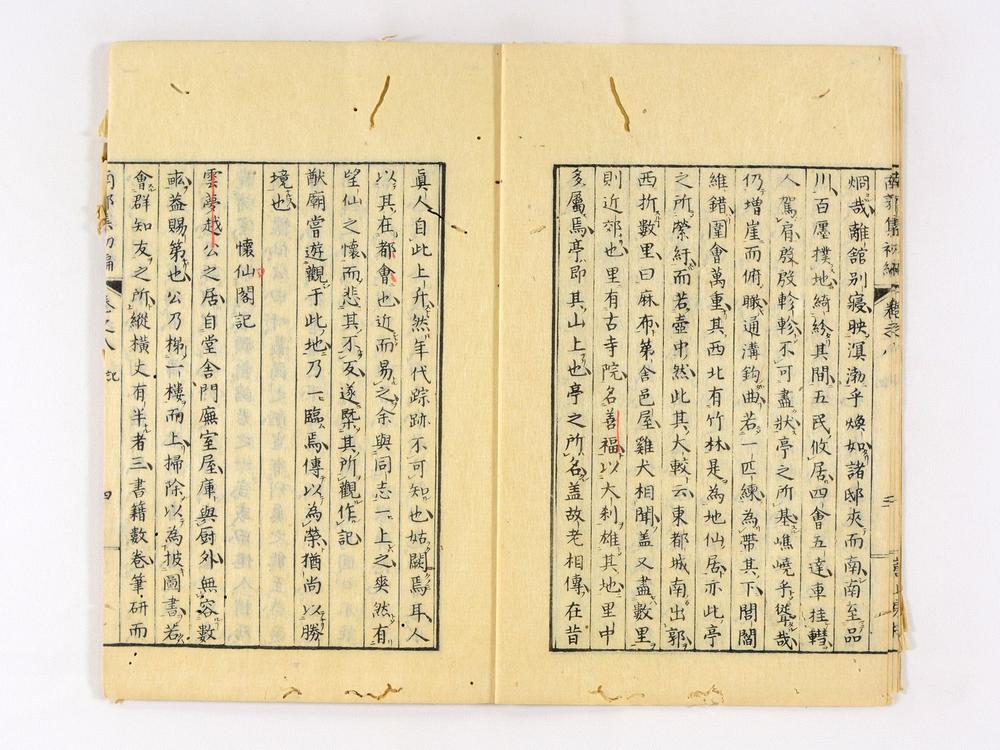 烱哉離舘別寢映溟渤乎煥如諸邸夾而南南至品
川百廛撲地綺紛其間五民攸居四會五達車挂轊
人駕肩殷殷軫軫不可盡狀亭之所基嶕嶢乎聳哉
仍增崖而俯瞰通溝鈎曲若一匹練為帶其下閭閻
維錯圍會萬重其西北有竹林是為地仙居亦此亭
之所縈紆而若壺中然此其大較云東都城南出郭
西折數里曰麻布第舍邑屋雞犬相聞盖又盡數里
則近郊也里有古寺院名善福以大刹雄其地里中
多屬焉亭即其山上也亭之所名盖故老相傳在昔
眞人自此上升然年代踪跡不可知也姑闕焉耳人
以其在都會也近而易之余與同志一上之爽然有
望仙之懷而悲其不友遂槩其所觀作記
猷廟嘗遊觀于此地乃一臨焉傳以為榮猶尚以勝
境也
懷仙閣記
雲夢越公之居自堂舍門廡室屋庫與厨外無容數
畝益賜第也公乃梯一樓而上掃除以為披圖書若
會群知友之所縱橫丈有半者三書籍數卷筆研而